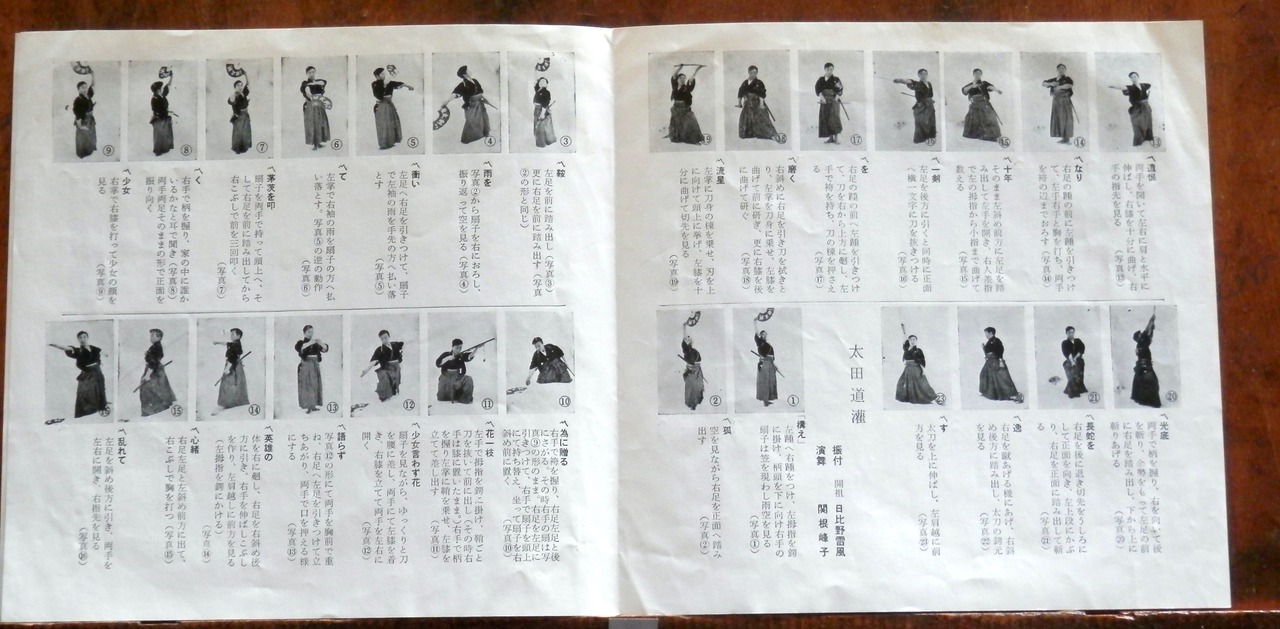 〽遺恨
両手を開いて左右に肩と水平に
伸ばし、右膝を十分に曲げ、右
手の指先を見る
(写真⑬)
〽なり
右足の踵の前に左踵を引きつけ
て、左手右手と胸を打ち、両手
を袴の辺までおろす(写真⑭)
〽十年
そのまま左斜め前方に左足を踏
み出して左手を開き、右人差指
で左の拇指から小指まで曲げて
数える
(写真⑮)
〽一剣
左足を後方に引くと同時に正面
へ横一文字に刀を抜きつける
(写真⑯)
〽を
右足の踵の前へ左踵を引きつけ
て、刀を右から上方に廻し、左
手で袴を持ち、刀の棟を押さえ
る
(写真⑰)
〽磨く
右斜めに右足を引き刀を拭きと
り、左掌を刀身に乗せ、左膝を
曲げて前に研ぎ、更に右膝を後
に曲げて研ぐ
(写真⑱)
〽流星
左掌に刀身の棟を乗せ、刃を上
に向けて頭上に挙げ、左膝を十
分に曲げて切先を見る
(写真⑲)
〽光底
両手で柄を握り、右を向いて後
を斬り、余勢をもって左足の前
に右足を踏み出し、下から上に
斬りあげる
(写真⑳)
〽長蛇を
右足を後に退き切先をうしろに
して正面を向き、左上段にかぶ
り、右足を正面に踏み出して斬
る
(写真㉑)
〽逸
右足を蹴あげる様にあげ、右斜
め後方に踏み出し、太刀の鍔元
を見る
(写真㉒)
〽す
太刀を上に伸ばし、左肩越に前
方を見る
(写真㉓)
太田道灌
振付 開祖 日比野雷風
演舞 関根峰子
「構え」
左踵へ右踵をつけ、左拇指を鍔
に掛け、柄頭を下に向け右手の
扇子は笠を現わし雨空を見る
(写真①)
〽孤
空を見ながら右足を正面へ踏み
出す
(写真②)
〽鞍
左足を前に踏み出し(写真③)
更に右足を前に踏み出す(写真
②の形と同じ)
〽雨を
写真②から扇子を右におろし、
振り返って空を見る(写真④)
〽衝い
左足へ右足を引きつけて、扇子
で左袖の雨を手先の方へ払い落
とす
(写真⑤)
〽て
左掌で右袖の雨を扇子の方へ払
い落とす。写真⑤の逆の動作
(写真⑥)
〽茅茨を叩
扇子を両手で持って頭上へ、そ
して右足を前に踏み出してから
右こぶしで前を三回叩く
(写真⑦)
〽く
右手で柄を握り、家の中に誰か
いるかなと耳で聞き(写真⑧)
両手両足そのままの形で正面を
振り向く
〽少女
右掌で右膝を打って少女の顔を
見る
(写真⑨)
〽為に贈る
右手で袴を握り、右足左足と後
にさがる。その時右手の扇は写
真⑨の形のまま。右足を左足に
引きつけて、右手で扇子を頭上
にて持ちかえ、坐って扇子を右
斜め前に置く
(写真⑩)
〽花一枝
左手で拇指を鍔に掛け、鞘ごと
刀を抜いて前に出し(その時右
手は膝に置いたまま。)右手で柄
を握り左掌に鞘を乗せ、左膝を
立てて差し出す
(写真⑪)
〽少女言わず花
扇子を見ながら、ゆっくりと刀
を腰に差し、両手にて左膝を着
き、右膝を立てて両手を左右に
開く
(写真⑫)
〽語らず
写真⑫の形にて両手を胸前で重
ね、右足へ左足を引きつけて立
ちあがり、両手で口を押える様
にする
(写真⑬)
〽英雄の
体を右に廻し、右足を右斜め後
方に引き、右手を伸ばしこぶし
を作り、左肩越しに前方を見る
(左拇指を鍔にかける)
(写真⑭)
〽心緒
右足左足と左斜め前方に出し、
右こぶしで胸を打つ(写真⑮)
〽乱れて
左足を斜め後方に引き、両手を
左右に開き、右指先を見る
(写真⑯)